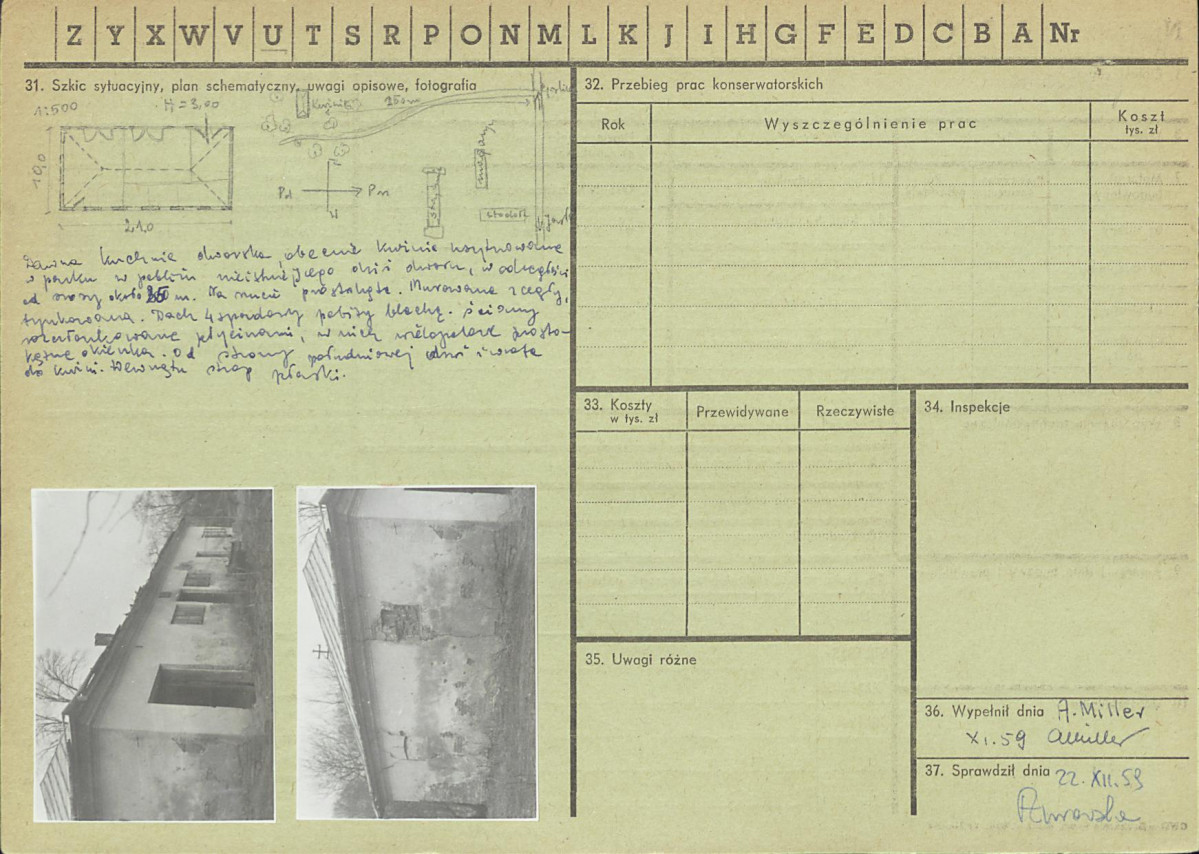 Z Y X W V U T S R P O N M L K J I H G F E D C B A Nr
31. Szkic sytuacyjny, plan schematyczny, uwagi opisowe, fotografia
1:500
H=3,00
250m
10,0
21,0
Pd
Pn
magazyn
stodoła
Dawna kuchnia dworska, obecnie kuźnia usytuowana
w parku w pobliżu nieistniejącego dziś dworu, w odległości
od szosy około 250 m. Na rzucie prostokąta. Murowana z cegły,
tynkowana. Dach 4 spadowy pobity blachą. Ściany
rozczłonkowane płycinami, w nich wielopolowe prosto-
kątne okienka. Od strony południowej drzwi i wrota
do kuźni. Wewnątrz strop płaski.
32. Przebieg prac konserwatorskich
Rok
Wyszczególnienie prac
Koszt
tys. zł
33. Koszty
w tys. zł
Przewidywane
Rzeczywiste
34. Inspekcje
35. Uwagi różne
36. Wypełnił dnia A. Miller
XI.59 AMiller
37. Sprawdził dnia 22.XII.59